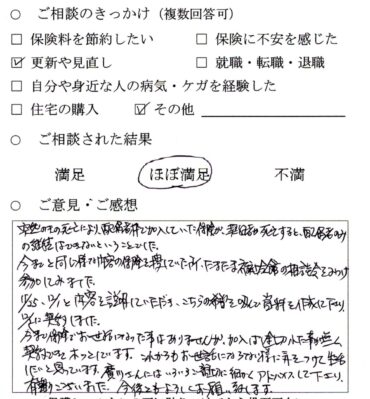 ○ ご相談のきっかけ（複数回答可）
□ 保険料を節約したい □ 保険に不安を感じた
☑ 更新や見直し □ 就職・転職・退職
□ 自分や身近な人の病気・ケガを経験した
□ 住宅の購入 ☑ その他
○ ご相談された結果
満足 ほぼ満足 不満
○ ご意見・ご感想
の死亡により、配偶者で加入していた保険が、死亡すると、配偶者のみ
の継続はできないということでした。
今までと同じ様な内容の保険を捜していた所、たまたま相談会をみつけ
参加してみました。
と内容を説明していただき、こちらの希望で資料を作成して下さり、
に契約しました。
今まで保険でお世話になった事はありませんが、加入
契約できてホッとしています。これからもお世話にならない様に気をつけて生活
したいと思っています。さんにはいろいろ親切に細かくアドバイスして下さり、
有難うございました。今後ともよろしくお願い致します。